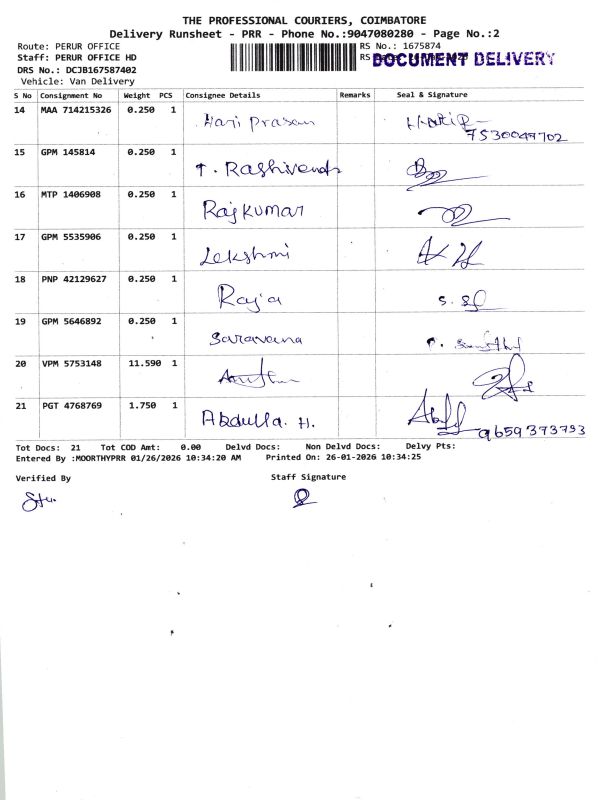 THE PROFESSIONAL COURIERS, COIMBATORE
Delivery Runsheet - PRR - Phone No.:9047080280 - Page No.:2
Route: PERUR OFFICE RS No.: 1675874
Staff: PERUR OFFICE HD RS DOCUMENT DELIVERY
DRS No.: DCJB167587402
Vehicle: Van Delivery
S No Consignment No Weight PCS Consignee Details Remarks Seal & Signature
14 MAA 714215326 0.250 1 Hari Prasan
7530049702
15 GPM 145814 0.250 1
16 MTP 1406908 0.250 1 Rajkumar
17 GPM 5535906 0.250 1 Lekshmi
18 PNP 42129627 0.250 1 Raja
19 GPM 5646892 0.250 1 Saravana
20 VPM 5753148 11.590 1
21 PGT 4768769 1.750 1 Abdulla. H.
9659373793
Tot Docs: 21 Tot COD Amt: 0.00 Delvd Docs: Non Delvd Docs: Delvy Pts:
Entered By :MOORTHYPRR 01/26/2026 10:34:20 AM Printed On: 26-01-2026 10:34:25
Verified By Staff Signature